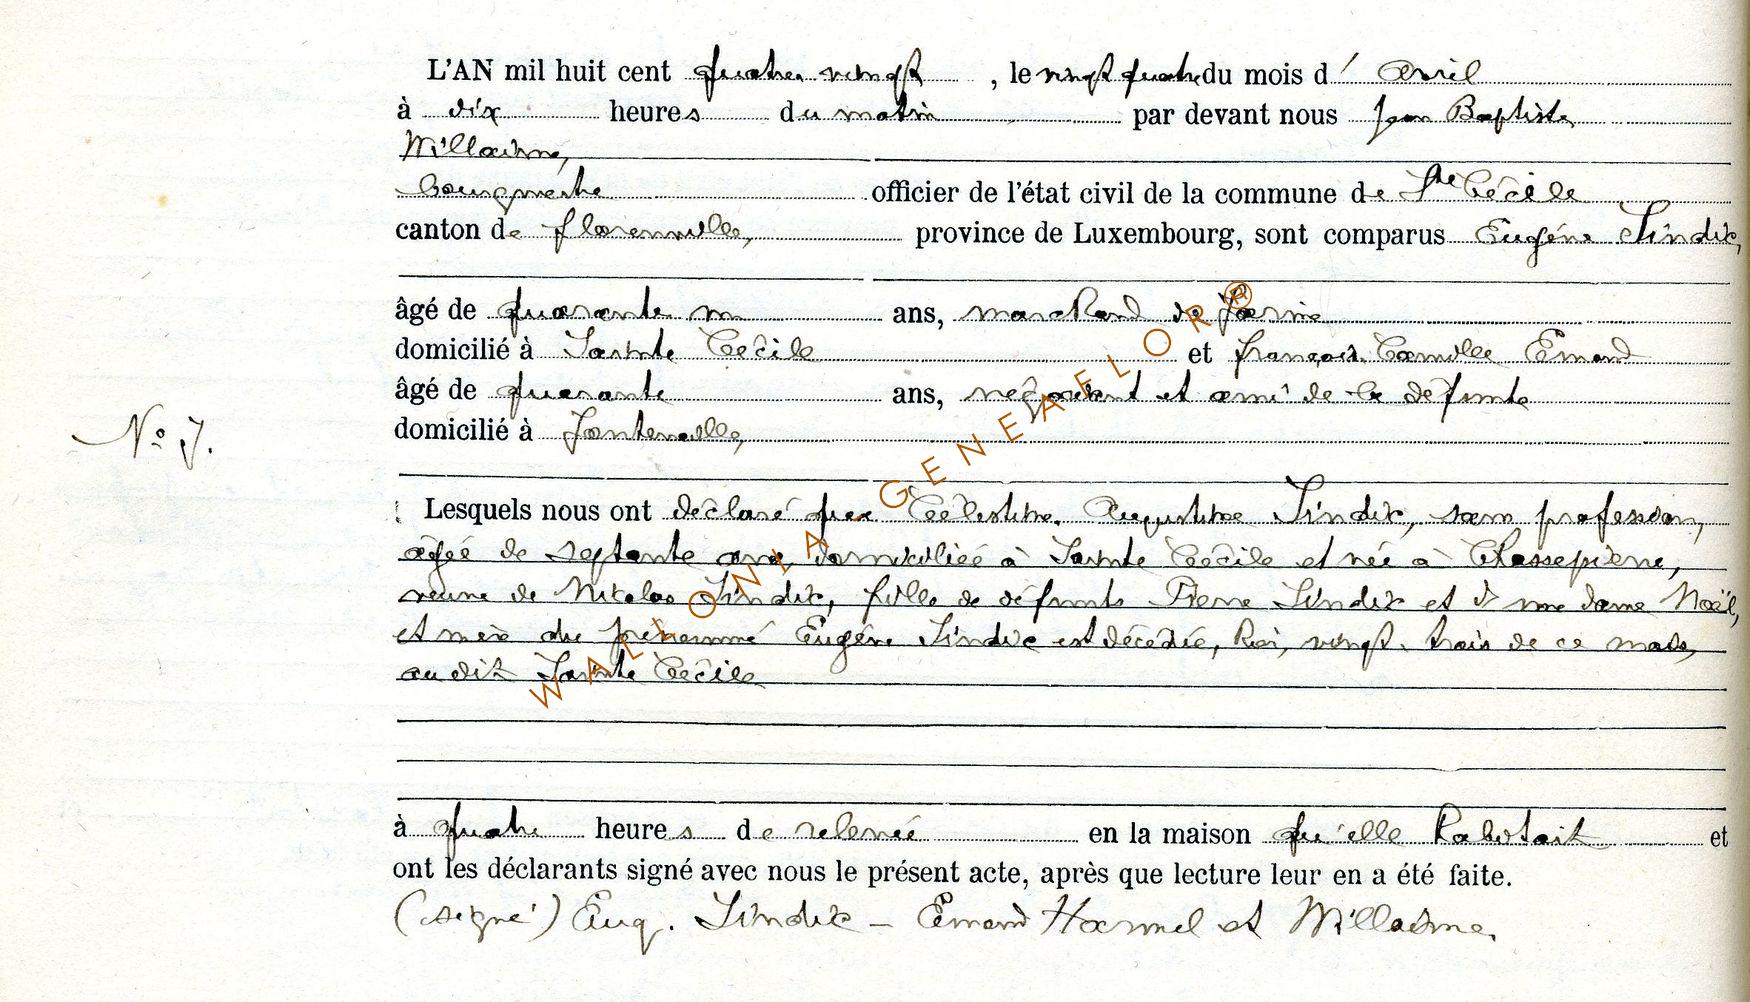 L'AN mil huit cent quatre vingt , le vingt quatre du mois d' avril
à dix heures du matin par devant nous Jean Baptiste
Willaime,
bourgmestre officier de l'état civil de la commune de Ste Cécile
canton de Florenville, province de Luxembourg, sont comparus Eugène Sindic,
âgé de quarante un ans, marchand de farine
domicilié à Sainte Cécile et François Camille Emond
âgé de quarante ans, négociant et ami de la défunte
domicilié à Fontenoille,
N° 7.
Lesquels nous ont déclaré que Célestine Augustine Sindic, sans profession,
âgée de septante ans, domiciliée à Sainte Cécile et née à Chassepierre,
veuve de Nicolas Sindic, fille de défunts Pierre Sindic et d'une dame Noël,
et mère du prénommé Eugène Sindic est décédée, hier, vingt-trois de ce mois,
au dit Sainte Cécile
à quatre heures de relevée en la maison qu'elle habitait et
ont les déclarants signé avec nous le présent acte, après que lecture leur en a été faite.
(signé) Eug. Sindic – Emond Hamel et Willaime.
WALLONIA GENEAFLOR®